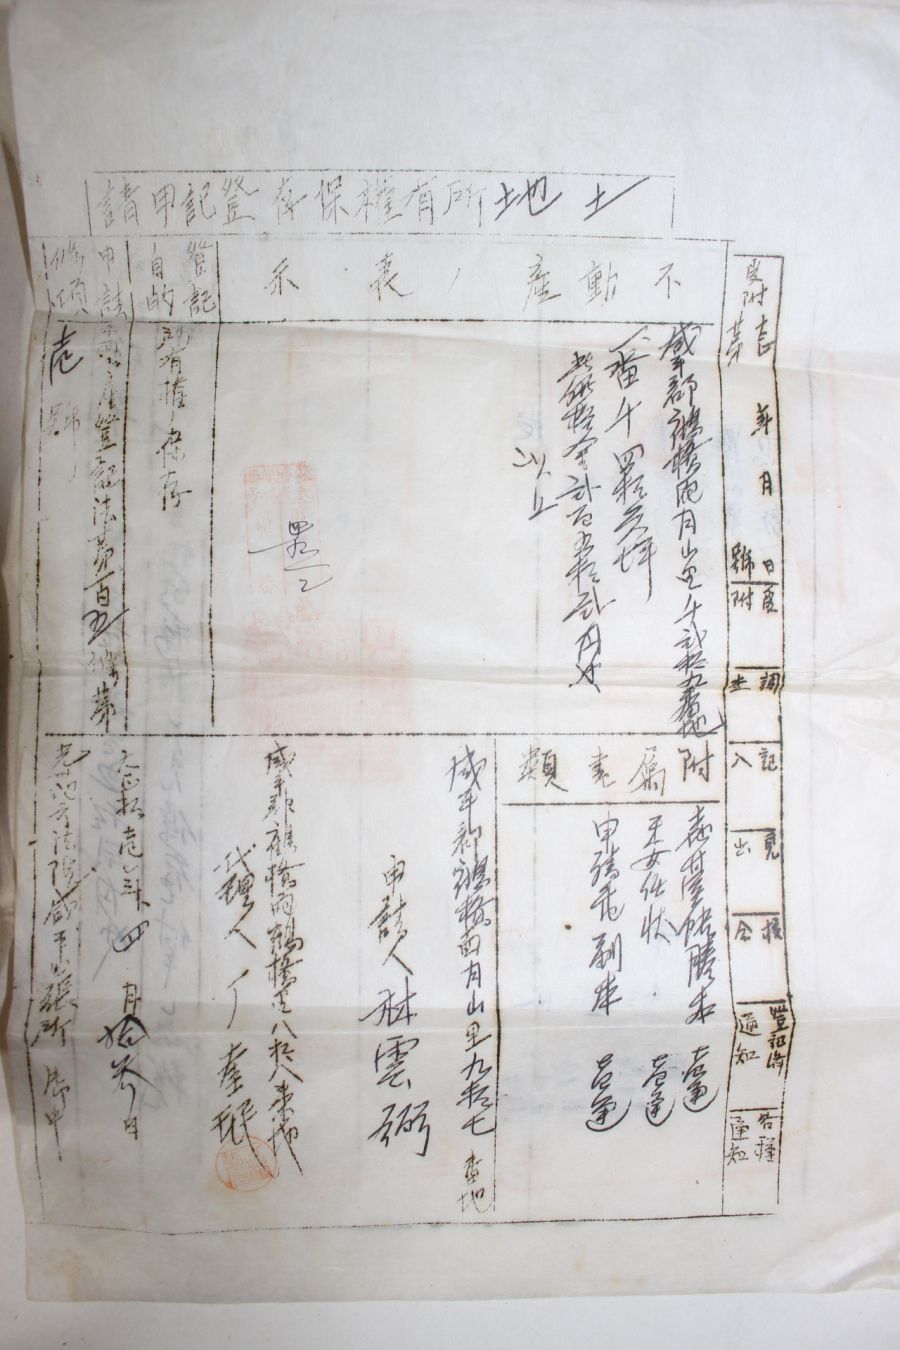 土地所有權保存登記申請
受附 大正 年 月 日 受附
第 號
調査
記入
見出
校合
登記済通知
各種通知
不動産ノ表示
咸平郡鶴橋面月山里千貳拾九番地
一、畓 千四拾六坪
此價格金貳百五拾貳円也
以上
登記目的
所有權ノ保存
申請條項
不動産登記法第百五條第壱號
附属書類
土地臺帳謄本 壱通
委任状 壱通
申請書副本 壱通
咸平郡鶴橋面月山里九拾七番地
申請人 林雲弼
咸平郡鶴橋面鶴橋里八拾八番地
代理人
大正拾壱年四月拾参日
光州地方法院咸平出張所 御中